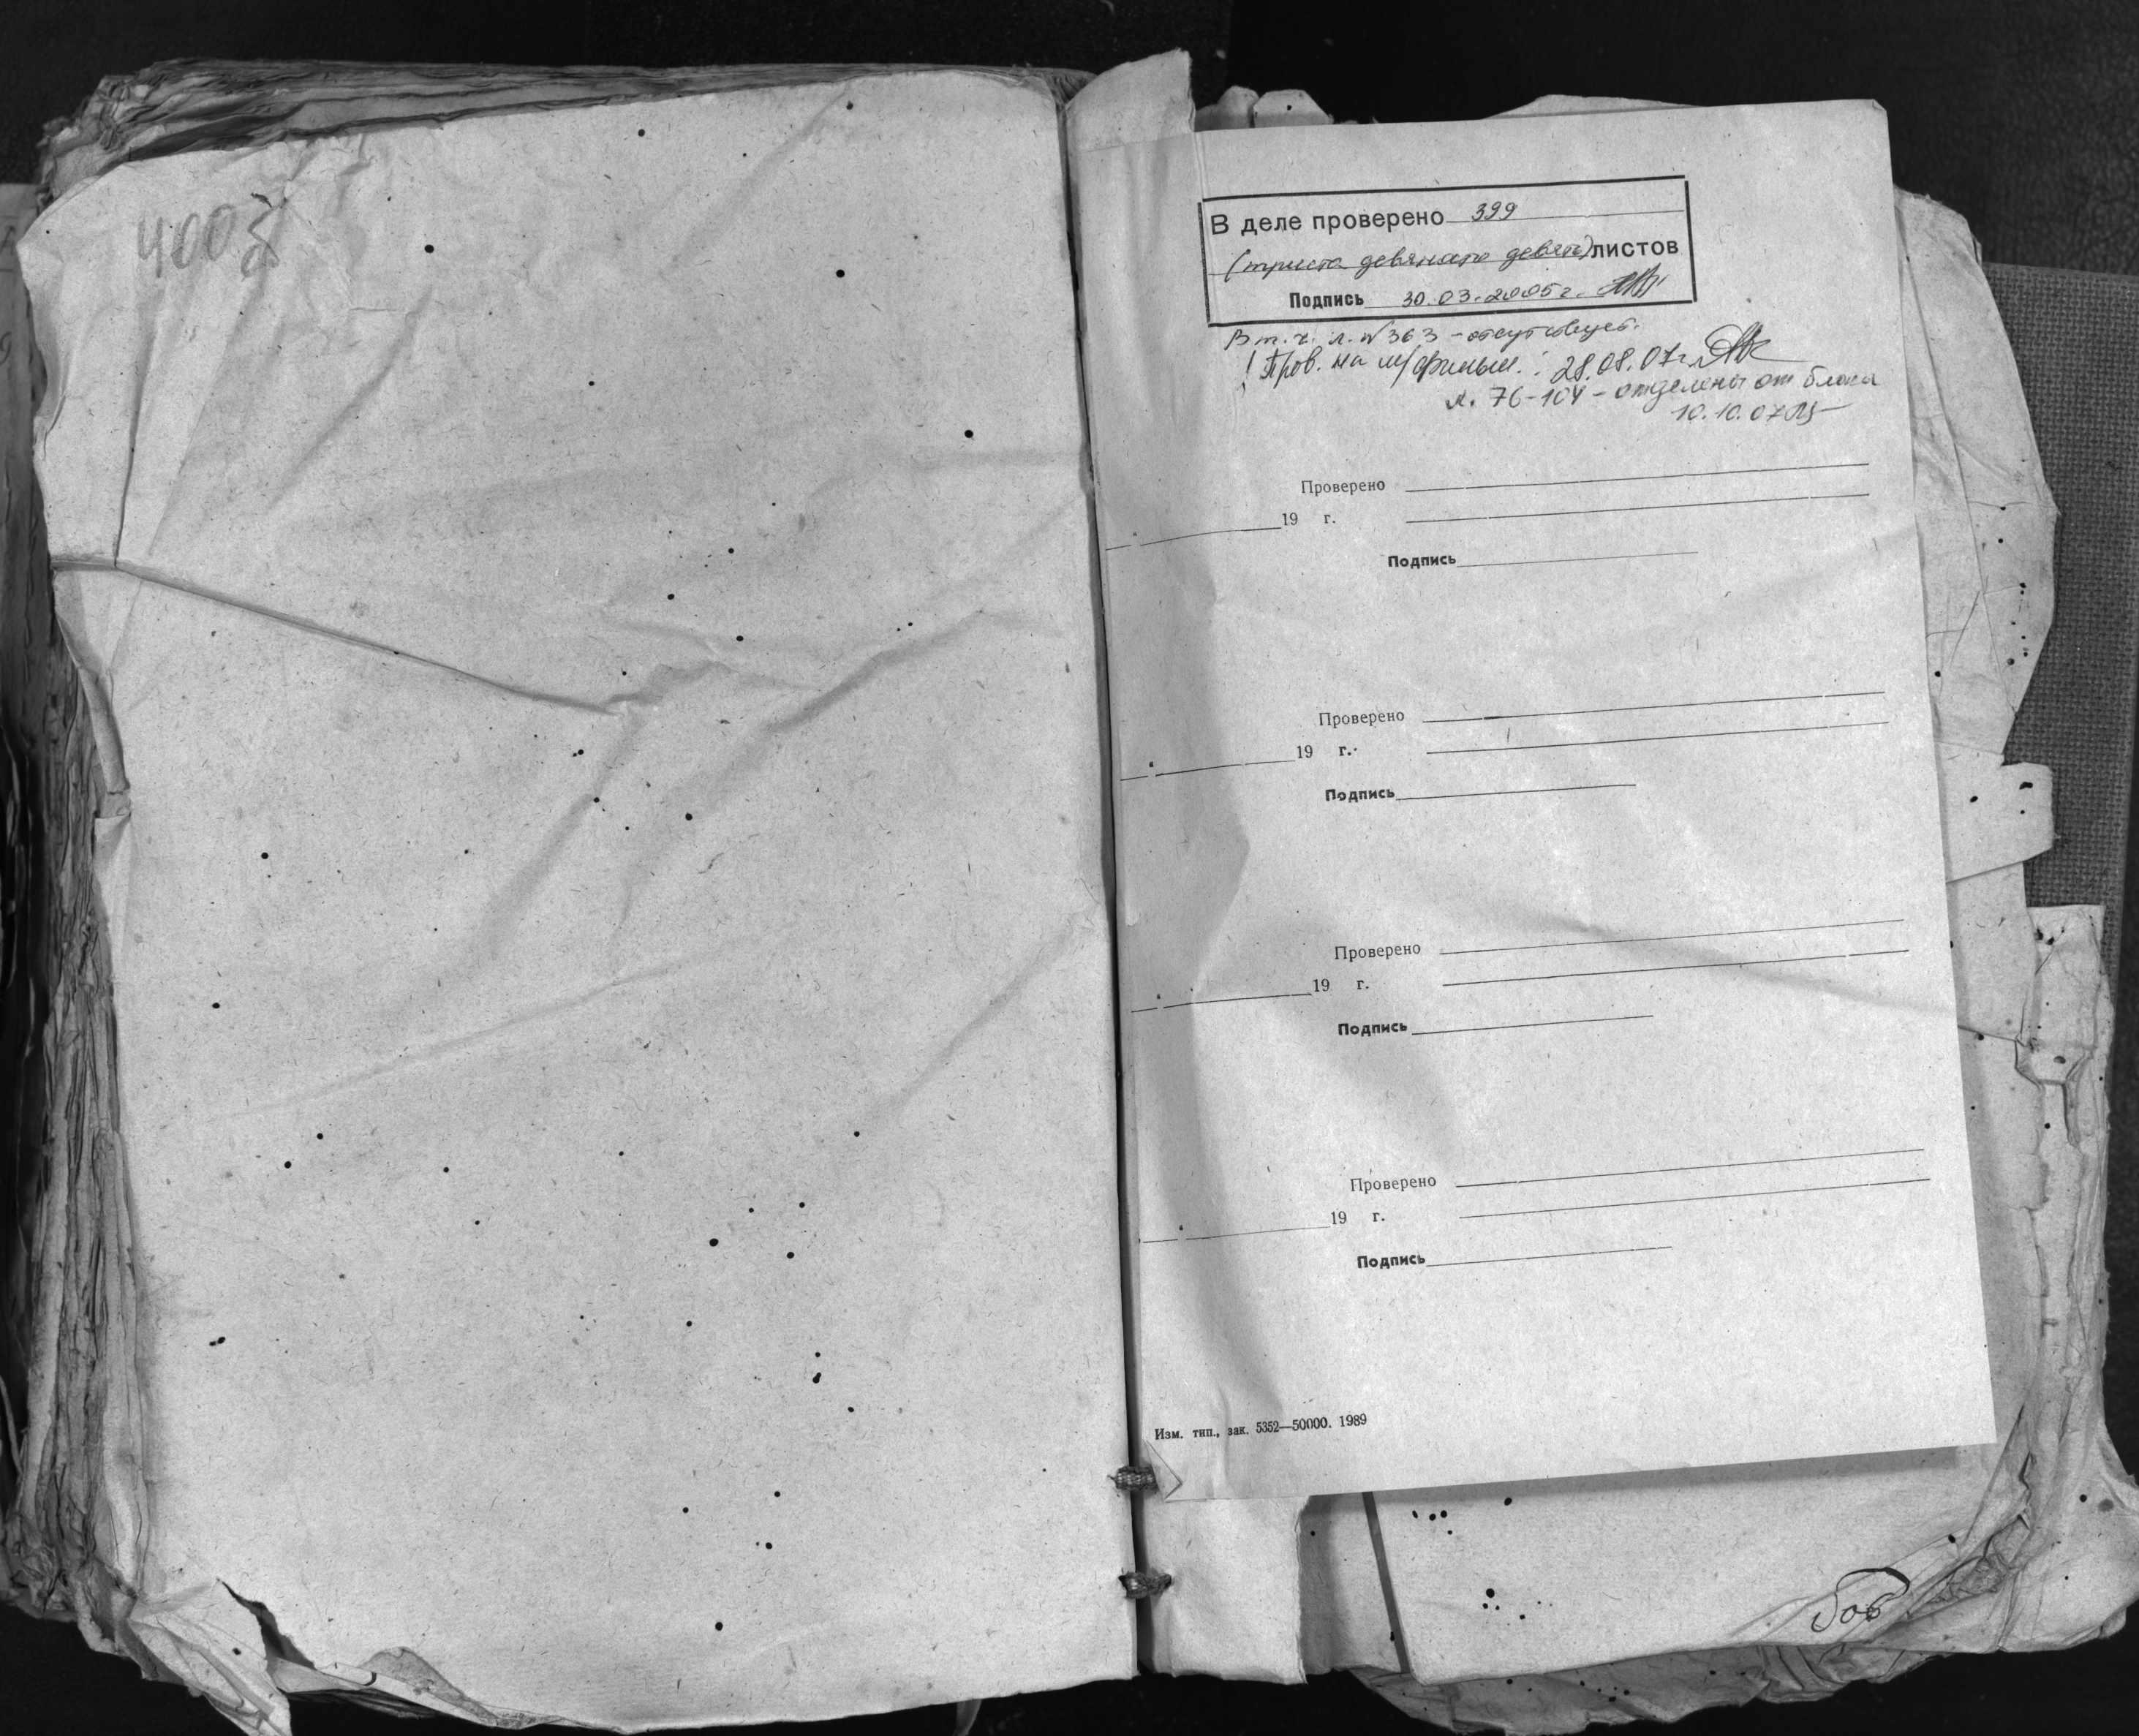 400
В деле проверено 399
(триста девяносто девять) листов
Подпись 30.03.2005 г.
В т. ч. л. № 363 - отсутствует.
! Пров. на м/фильм.: 28.08.07 г.
л. 76-104 - отделены от блока
10.10.07
Проверено
19 г.
Подпись
Проверено
19 г.
Подпись
Проверено
19 г.
Подпись
Проверено
19 г.
Подпись
Изм. тип., зак. 5352—50000. 1989